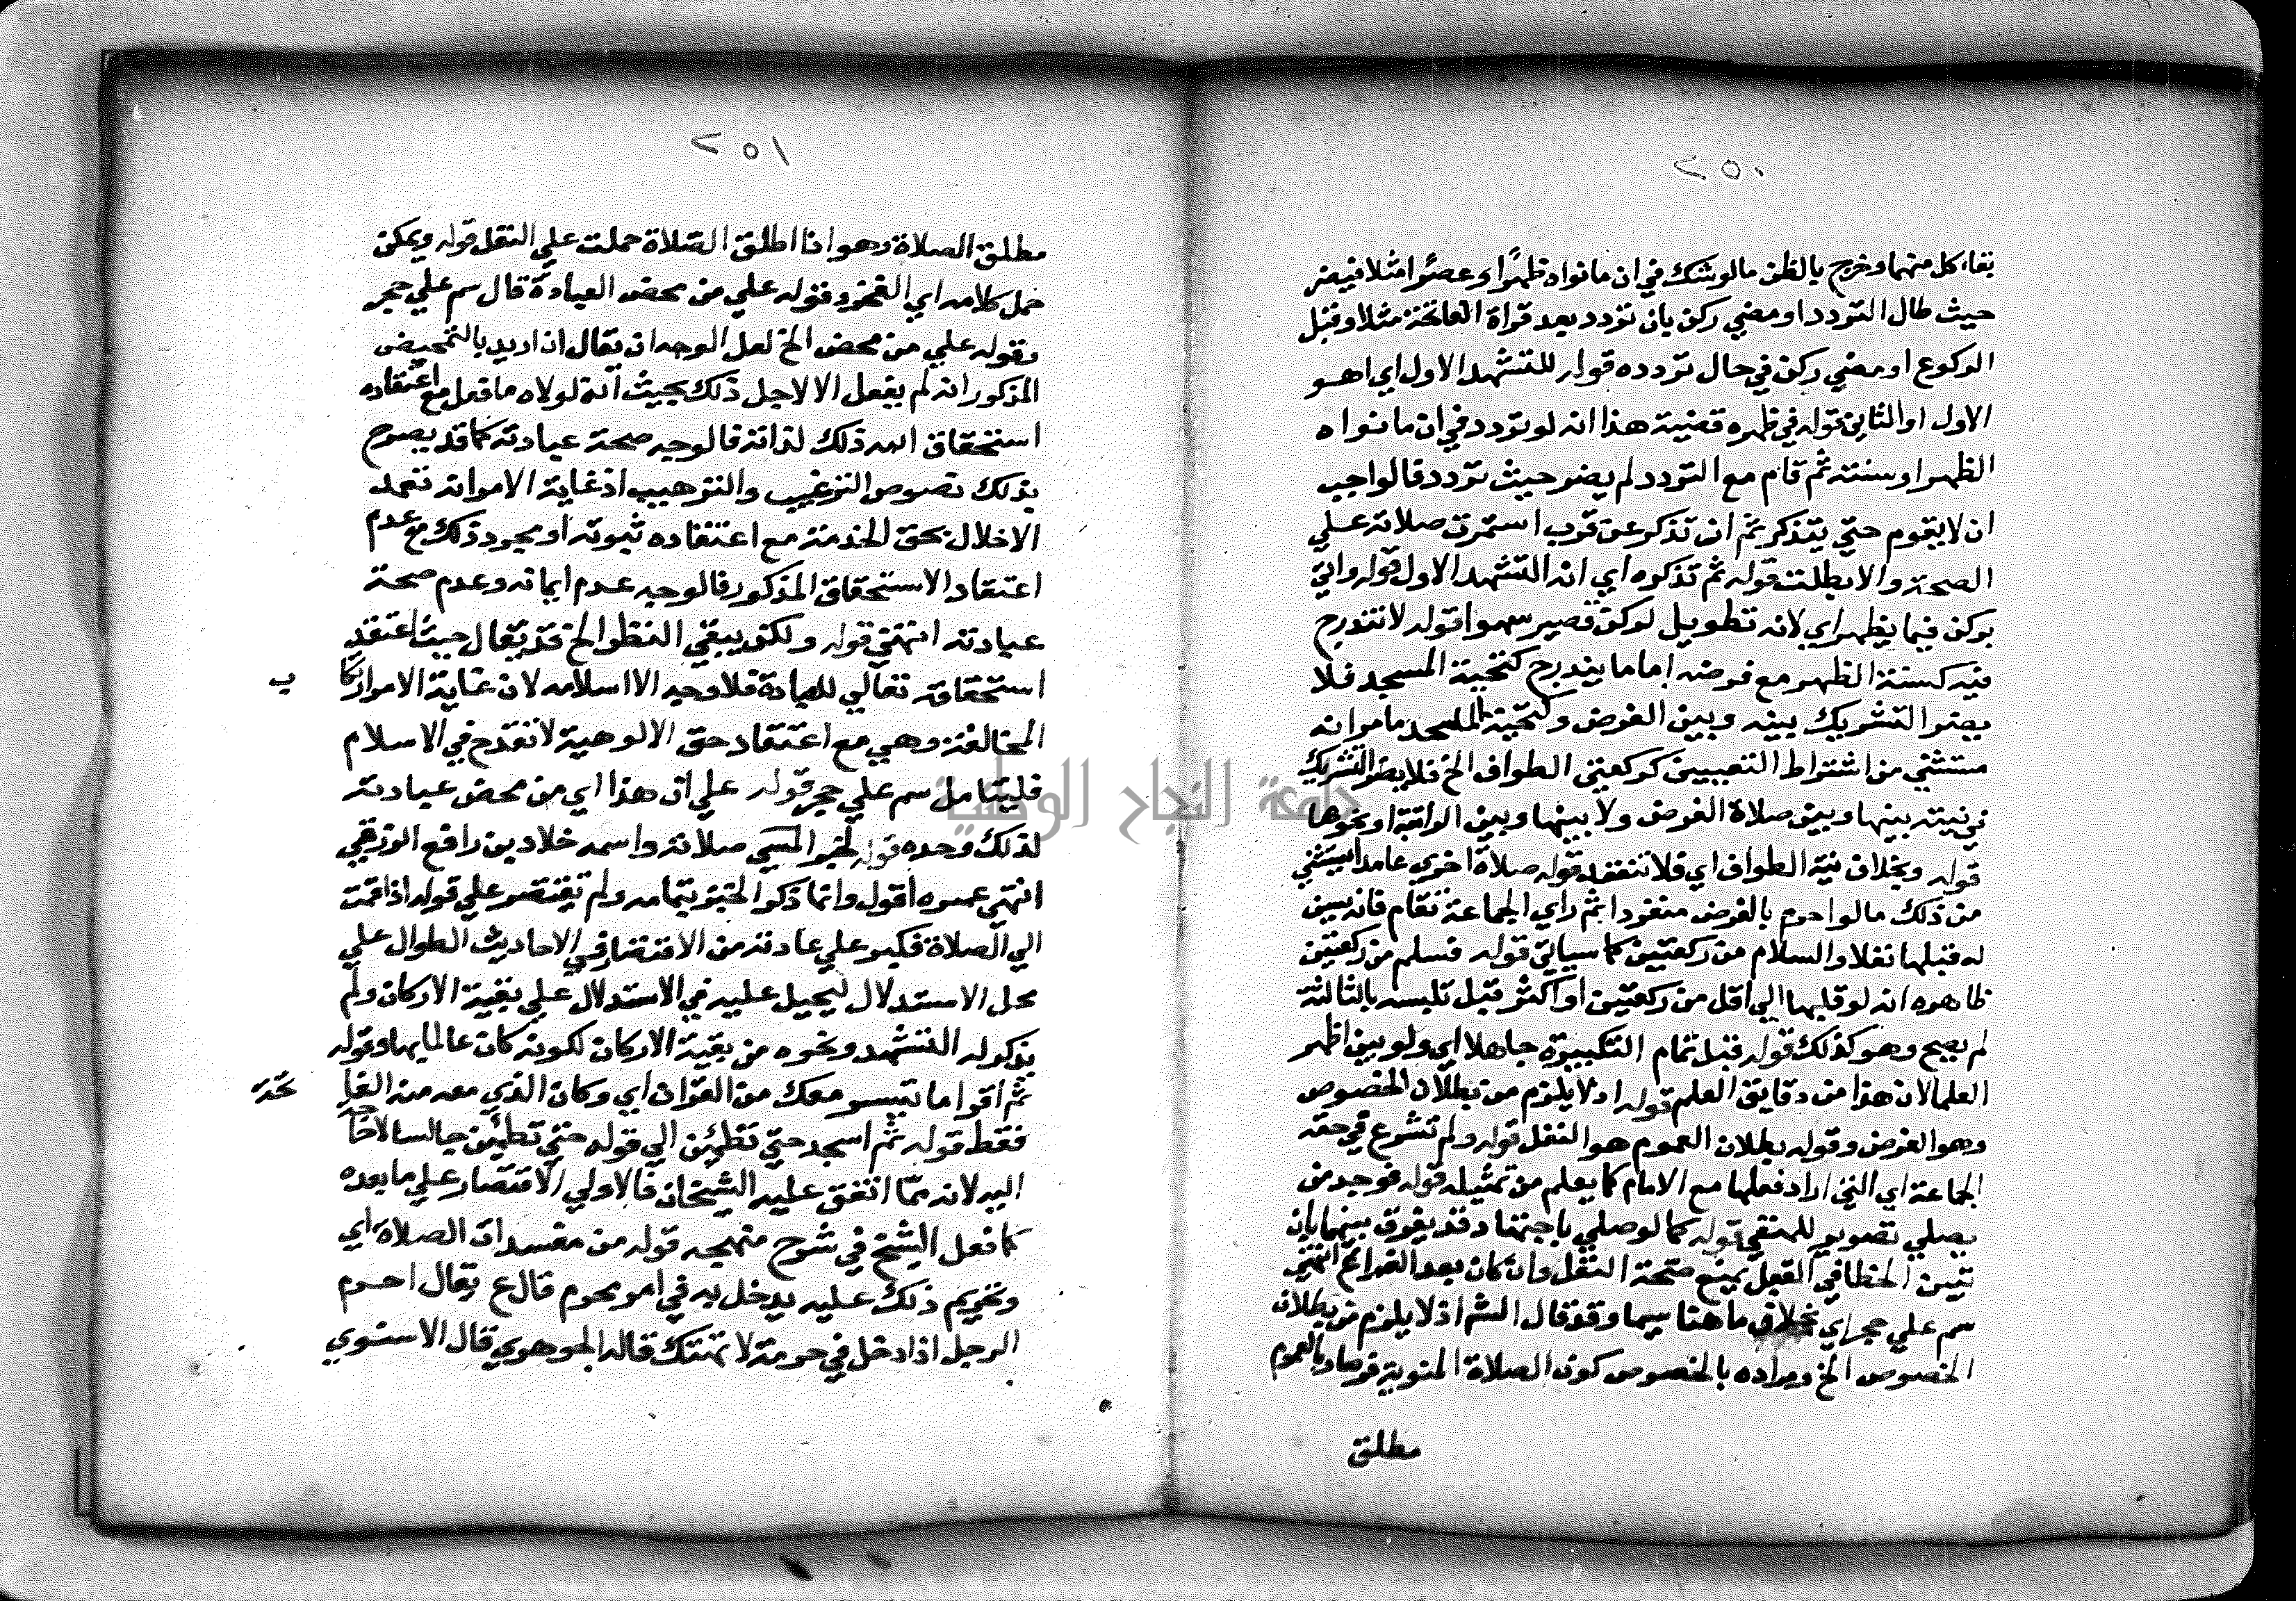 ٢٥٠
بقاء كل منهما وخرج بالظن مالوشك في ان مانواه ظهرا وعصرا مثلا فيضر
حيث طال التردد او مضي ركن بان تردد بعد قراة الفاتحة مثلا وقبل
الركوع او مضي ركن في حال تردده قوله للتشهد الاول اي اهو
الاول او الثاني قوله في ظهره قضية هذا انه لو تردد في ان مانواه
الظهر او سنته ثم قام مع التردد لم يضر حيث تردد فالواجب
ان لا يقوم حتي يتذكر ثم ان تذكر عن قرب استمرت صلاته علي
الصحة والا بطلت قوله ثم تذكره اي انه التشهد الاول قوله واتي
بركن فيما يظهر اي لانه تطويل لركن قصير سهوا قوله لا تندرج
فيه كسنة الظهر مع فرضه اما ما يندرج كتحية المسجد فلا
يضر التشريك بينه وبين الفرض وكتحية المسجد مامر انه
مستثني من اشتراط التعيين كركعتي الطواف الخ فلا يضر التشريك
في نيته بينها وبين صلاة الفرض ولا بينها وبين الراتبة او نحوها
قوله وبخلاف نية الطواف اي فلا تنعقد قوله صلاة اخري عامدا يستثني
من ذلك مالو احرم بالفرض منفردا ثم راي الجماعة تقام فانه يسن
له قبلها نفلا والسلام من ركعتين كما سياتي قوله فسلم من ركعتين
ظاهره انه لو قلبها الي اقل من ركعتين او اكثر قبل تلبسه بالثالثة
لم يصح وهو كذلك قوله قبل تمام التكبيرة جاهلا اي ولو بين اظهر
العلما لان هذا من دقايق العلم قوله اذ لا يلزم من بطلان الخصوص
وهو الفرض وقوله بطلان العموم هو النفل قوله ولم تشرع في حقه
الجماعة اي التي اراد فعلها مع الامام كما يعلم من تمثيله قوله فوجد من
يصلي تصوير للمنفي قوله كما لو صلي باجتهاد قد يفرق بينهما بان
تبين الخطا في القبل يمنع صحة النفل وان كان بعد الفراغ انتهي
سم علي حجر اي بخلاف ما هنا سيما وقد قال الشر اذ لا يلزم من بطلان
الخصوص الخ ومراده بالخصوص كون الصلاة المنوية فرضا وبالعموم
مطلق
٢٥١
مطلق الصلاة وهو اذا اطلق الصلاة حملت علي النفل قوله ويمكن
حمل كلامه اي الفخر وقوله علي من محض العبادة قال سم علي حجر
وقوله علي من محض الخ لعل الوجه ان يقال ان اريد بالتمحيض
المذكور انه لم يفعل الا لاجل ذلك بحيث انه لولاه ما فعل مع اعتقاده
استحقاق الله ذلك لذاته فالوجه صحة عبادته كما قد يصرح
بذلك نصوص الترغيب والترهيب اذ غاية الامر انه تعمد
الاخلال بحق الخدمة مع اعتقاده ثبوته او بجود ذلك مع عدم
اعتقاد الاستحقاق المذكور فالوجه عدم ايمانه وعدم صحة
عبادته انتهي قوله ولكن يبقي النظر الخ قد يقال حيث اعتقد
استحقاقه تعالي للعبادة فلا وجه الا اسلامه لان غاية الامر ارتكا
ب
المخالفة وهي مع اعتقاد حق الالوهية لا تقدح في الاسلام
فليتامل سم علي حجر قوله علي ان هذا اي من محض عبادته
لذلك وحده قوله لخبر المسي صلاته واسمه خلاد بن رافع الزرقي
انتهي عميره اقول وانما ذكر الخبر بتمامه ولم يقتصر علي قوله اذا قمت
الي الصلاة فكبر علي عادته من الاقتصار في الاحاديث الطوال علي
محل الاستدلال ليحيل عليه في الاستدلال علي بقية الاركان ولم
يذكر له التشهد ونحوه من بقية الاركان لكونه كان عالما بها وقوله
ثم اقرا ما تيسر معك من القران اي وكان الذي معه منه الفا
تحة
فقط قوله ثم اسجد حتي تطمئن الي قوله حتي تطمئن جالسا لا حاجة
اليه لانه مما اتفق عليه الشيخان فالاولي الاقتصار علي ما بعده
كما فعل الشيخ في شرح منهجه قوله من مفسدات الصلاة اي
وتحريم ذلك عليه يدخل به في امر محرم قال ع يقال احرم
الرجل اذا دخل في حرمة لا تهتك قاله الجوهري قال الاسنوي
جامعة النجاح الوطنية